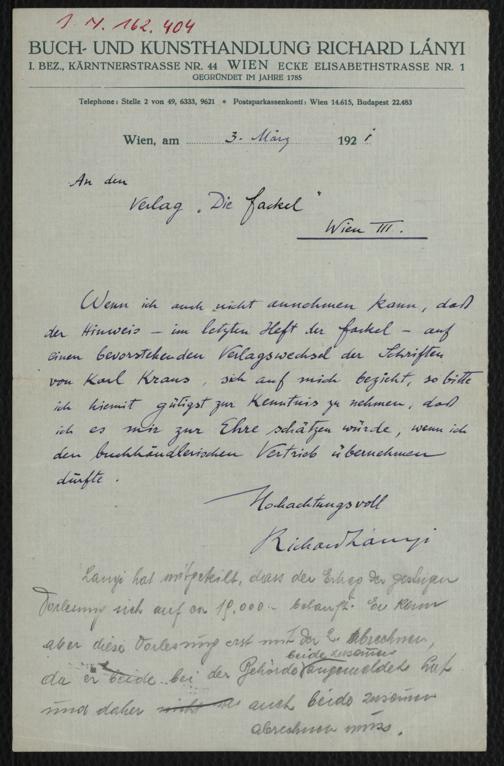 I. N. 162.404
BUCH- UND KUNSTHANDLUNG RICHARD LÁNYI
I. BEZ., KÄRNTNERSTRASSE NR. 44 WIEN ECKE ELISABETHSTRASSE NR. 1
GEGRÜNDET IM JAHRE 1785
Telephone: Stelle 2 von 49, 6333, 9621 * Postsparkassenkonti: Wien 14.615, Budapest 22.483
Wien, am 3. März 1921
An den
Verlag „Die Fackel"
Wien III.
Wenn ich auch nicht annehmen kann, daß
der Hinweis – im letzten Heft der Fackel – auf
einen bevorstehenden Verlagswechsel der Schriften
von Karl Kraus, sich auf mich bezieht, so bitte
ich hiemit gütigst zur Kenntnis zu nehmen, daß
ich es mir zur Ehre schätzen würde, wenn ich
den buchhändlerischen Vertrieb übernehmen
dürfte.
Hochachtungsvoll
Richard Lányi
Lanyi hat mitgeteilt, dass der Ertrag der gestrigen
Vorlesung sich auf ca 19.000.– beläuft. Er kann
aber diese Vorlesung erst mit der abrechnen,
da er beide bei der Behörde beide zusammen angemeldet hat
und daher auch beide zusammen
abrechnen muss.